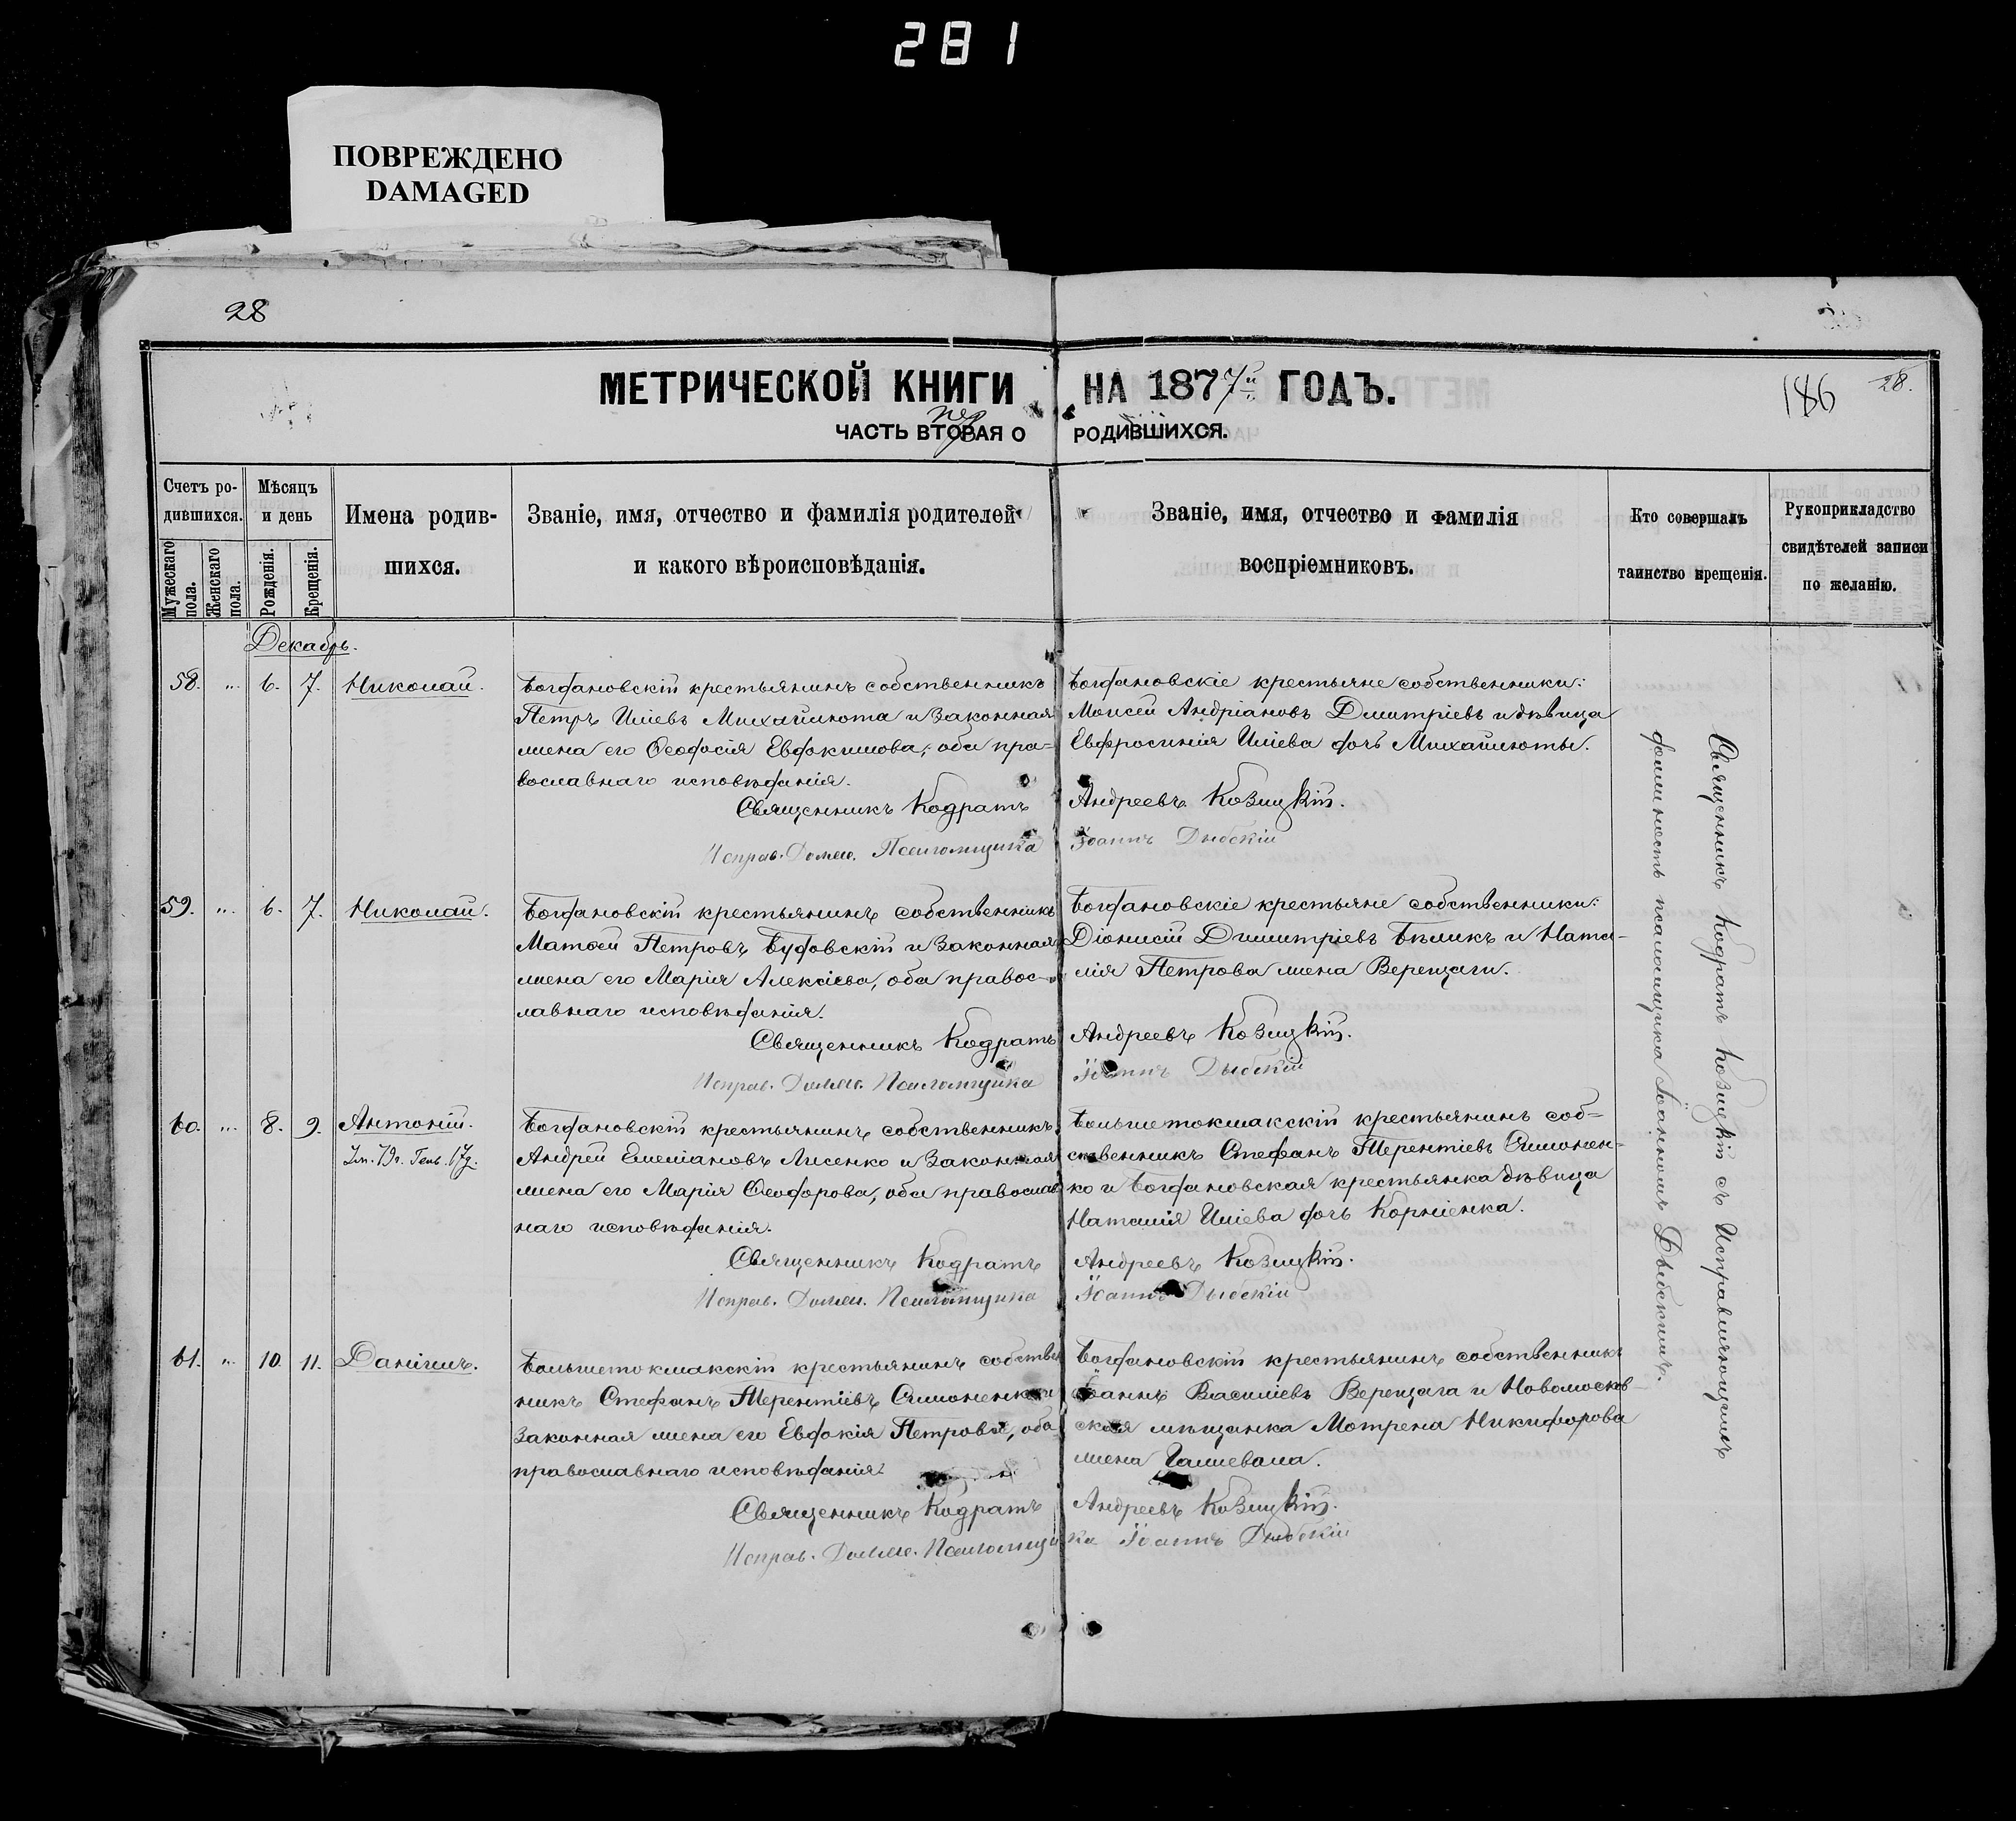 281
ПОВРЕЖДЕНО
DAMAGED
28
МЕТРИЧЕСКОЙ КНИГИ НА 1877й ГОДЪ.
186 28.
ЧАСТЬ ВТОРАЯ О РОДИВШИХСЯ.
Счетъ родившихся.
Мужескаго пола.
Женскаго пола.
Мѣсяцъ и день
Рожденія.
Крещенія.
Имена родившихся.
Званіе, имя, отчество и фамилія родителей
и какого вѣроисповѣданія.
Званіе, имя, отчество и фамилія
воспріемниковъ.
Кто совершалъ
таинство крещенія.
Рукоприкладство
свидѣтелей записи
по желанію.
Декабрь.
58. " 6. 7. Николай.
Богдановскій крестьянинъ собственникъ
Петръ Иліевъ Михайлюта и законная
жена его Ѳеодосія Евдокимова, оба пра-
вославнаго исповѣданія.
Богдановскіе крестьяне собственники:
Моисей Андріановъ Дмитріевъ и дѣвица
Евфросинія Иліева дочь Михайлюты.
Священникъ Кодратъ Андреевъ Козицкій.
Исправ. Должн. Псаломщика Іоаннъ Дыбскій
59. " 6. 7. Николай.
Богдановскій крестьянинъ собственникъ
Матѳей Петровъ Будовскій и законная
жена его Марія Алексіева, оба правос-
лавнаго исповѣданія.
Богдановскіе крестьяне собственники:
Діонисій Димитріевъ Бѣликъ и Ната-
лія Петрова жена Верещаги.
Священникъ Кодратъ Андреевъ Козицкій.
Исправ. Должн. Псаломщика Іоаннъ Дыбскій
60. " 8. 9. Антоній.
Богдановскій крестьянинъ собственникъ
Андрей Емеліановъ Лисенко и законная
жена его Марія Ѳеодорова, оба православ
наго исповѣданія.
Большетокмакскій крестьянинъ соб-
ственникъ Стефанъ Терентіевъ Симонен-
ко и Богдановская крестьянка дѣвица
Наталія Иліева дочь Корніенка.
Священникъ Кодратъ Андреевъ Козицкій.
Исправ. Должн. Псаломщика Іоаннъ Дыбскій
61. " 10. 11. Даніилъ.
Большетокмакскій крестьянинъ собствен
никъ Стефанъ Терентіевъ Симоненко и
законная жена его Евдокія Петрова, оба
православнаго исповѣданія.
Богдановскій крестьянинъ собственникъ
Іоаннъ Василіевъ Верещага и Новомосков-
ская мѣщанка Мотрена Никифорова
жена
Священникъ Кодратъ Андреевъ Козицкій.
Исправ. Должн. Псаломщика Іоаннъ Дыбскій
Священникъ Кодратъ Козицкій съ Исправляющимъ
должность псаломщика Іоанномъ Дыбскимъ.